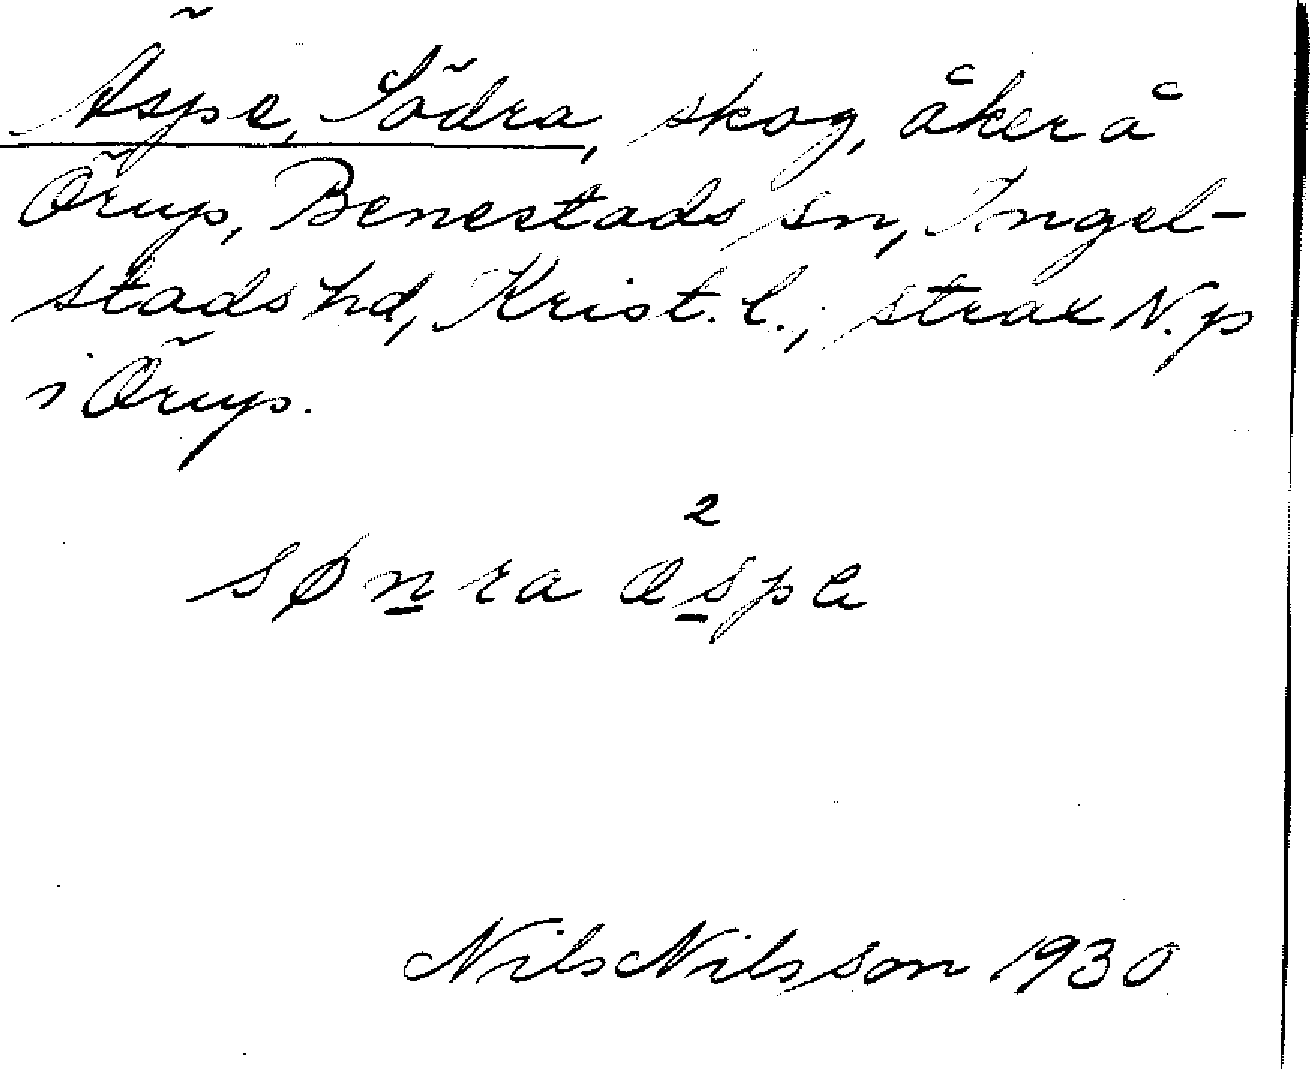 Äspe, Södra, skog, åker å
Örup, Benestads sn, Ingel-
stads hd, Krist. l.; strax N. p
i Örup.
2
sønra æspa
Nils Nilsson 1930